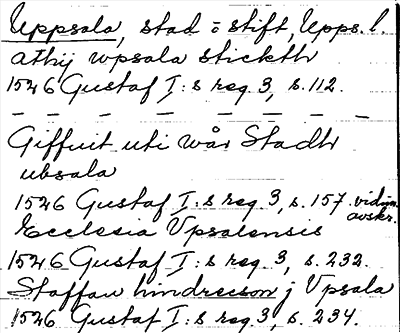 Uppsala, stad o stift, Upps. l.
athij wpsala stickth
1526 Gustaf I:s reg. 3, s. 112.
— — — — — — — —
Giffuit uti wår Stadh
ubsala
1526 Gustaf I:s reg. 3, s. 157. vidim. avskr.
Ecclesia Vpsalensis
1526 Gustaf I:s reg. 3, s. 232.
Staffan hindrecson j Vpsala
1526 Gustaf I:s reg. 3, s. 234.